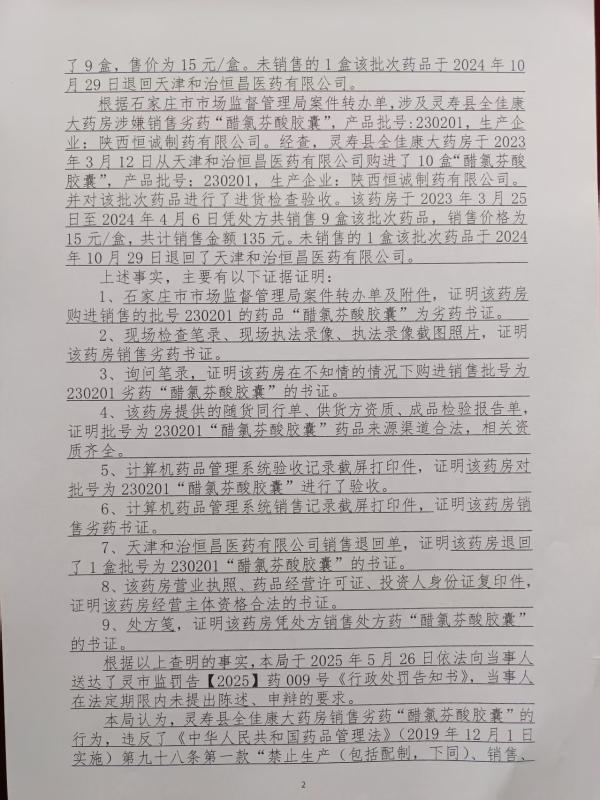 了9盒，售价为15元/盒。未销售的1盒该批次药品于2024年10
月29日退回天津和治恒昌医药有限公司。
根据石家庄市市场监督管理局案件转办单，涉及灵寿县全佳康
大药房涉嫌销售劣药“醋氯芬酸胶囊”，产品批号:230201，生产企
业：陕西恒诚制药有限公司。经查，灵寿县全佳康大药房于2023
年3月12日从天津和治恒昌医药有限公司购进了10盒“醋氯芬酸
胶囊”，产品批号：230201，生产企业：陕西恒诚制药有限公司。
并对该批次药品进行了进货检查验收。该药房于2023年3月25
日至2024年4月6日凭处方共销售9盒该批次药品，销售价格为
15元/盒，共计销售金额135元。未销售的1盒该批次药品于2024
年10月29日退回了天津和治恒昌医药有限公司。
上述事实，主要有以下证据证明：
1、石家庄市市场监督管理局案件转办单及附件，证明该药房
购进销售的批号230201的药品“醋氯芬酸胶囊”为劣药书证。
2、现场检查笔录、现场执法录像、执法录像截图照片，证明
该药房销售劣药书证。
3、询问笔录，证明该药房在不知情的情况下购进销售批号为
230201劣药“醋氯芬酸胶囊”的书证。
4、该药房提供的随货同行单、供货方资质、成品检验报告单，
证明批号为230201“醋氯芬酸胶囊”药品来源渠道合法，相关资
质齐全。
5、计算机药品管理系统验收记录截屏打印件，证明该药房对
批号为230201“醋氯芬酸胶囊”进行了验收。
6、计算机药品管理系统销售记录截屏打印件，证明该药房销
售劣药书证。
7、天津和治恒昌医药有限公司销售退回单，证明该药房退回
了1盒批号为230201“醋氯芬酸胶囊”的书证。
8、该药房营业执照、药品经营许可证、投资人身份证复印件，
证明该药房经营主体资格合法的书证。
9、处方笺，证明该药房凭处方销售处方药“醋氯芬酸胶囊”
的书证。
根据以上查明的事实，本局于2025年5月26日依法向当事人
送达了灵市监罚告【2025】药009号《行政处罚告知书》，当事人
在法定期限内未提出陈述、申辩的要求。
本局认为，灵寿县全佳康大药房销售劣药“醋氯芬酸胶囊”的
行为，违反了《中华人民共和国药品管理法》（2019年12月1日
实施）第九十八条第一款“禁止生产（包括配制，下同）、销售、
2